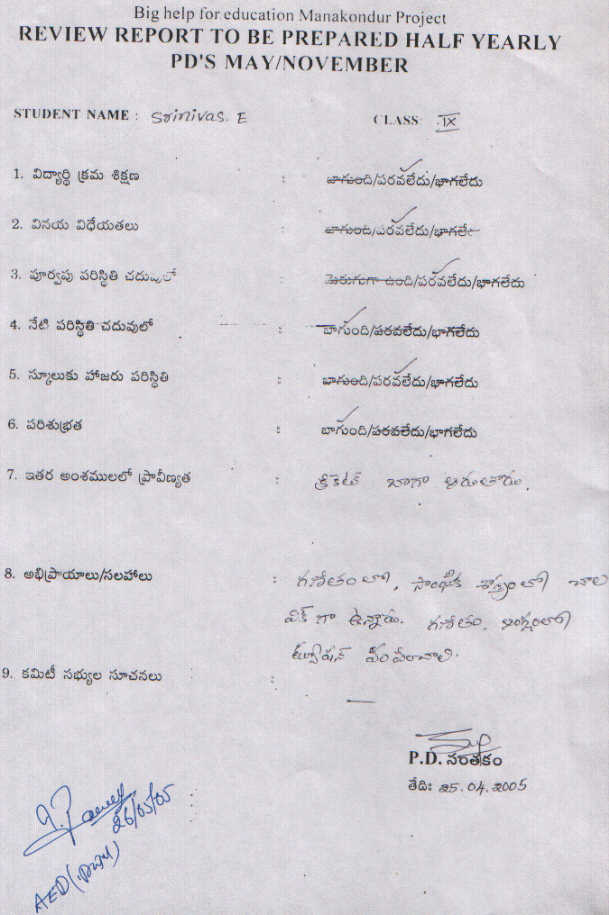 Big help for education Manakondur Project
REVIEW REPORT TO BE PREPARED HALF YEARLY
PD'S MAY/NOVEMBER
STUDENT NAME : Srinivas. E CLASS IX
1. విద్యార్థి క్రమ శిక్షణ : బాగుంది/పరవలేదు/భాగలేదు
2. వినయ విధేయతలు : బాగుంది/పరవలేదు/భాగలే
3. పూర్వపు పరిస్థితి చదువులో : మెరుగుగా ఉంది/పరవలేదు/భాగలేదు
4. నేటి పరిస్థితి చదువులో : బాగుంది/పరవలేదు/భాగలేదు
5. స్కూలుకు హాజరు పరిస్థితి : బాగుంది/పరవలేదు/భాగలేదు
6. పరిశుభ్రత : బాగుంది/పరవలేదు/భాగలేదు
7. ఇతర అంశములలో ప్రావీణ్యత : క్రికెట్ బాగా ఆడుతాడు.
8. అభిప్రాయాలు/సలహాలు : గణితం లో, సాంఘిక శాస్త్రం లో చాల
వీక్ గా ఉన్నాడు. గణితం,
ట్యూషన్
9. కమిటీ సభ్యుల సూచనలు : —
P.D. సంతకం
తేది: 25.04.2005
26/05/05
AED